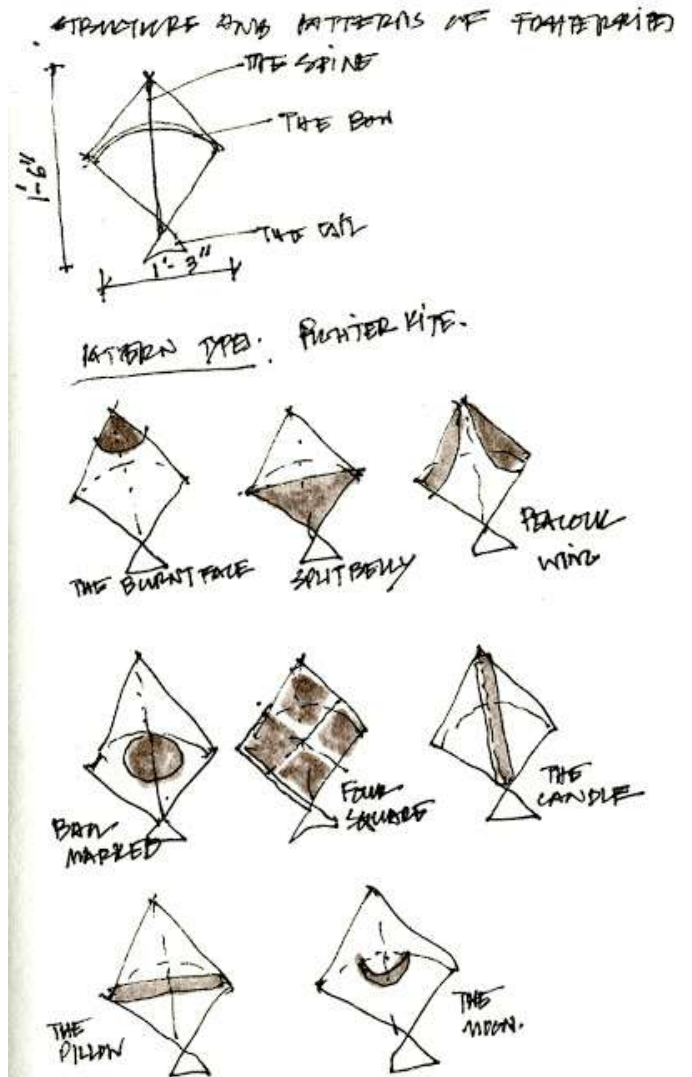 STRUCTURE AND PATTERNS OF
THE SPINE
THE BOW
1'-6"
THE TAIL
1'-3"
PATTERN TYPE: FIGHTER KITE.
THE BURNT FACE
SPLIT BELLY
PEACOCK
WING
BALL
MARKED
FOUR
SQUARE
THE
CANDLE
THE
PILLOW
THE
MOON.